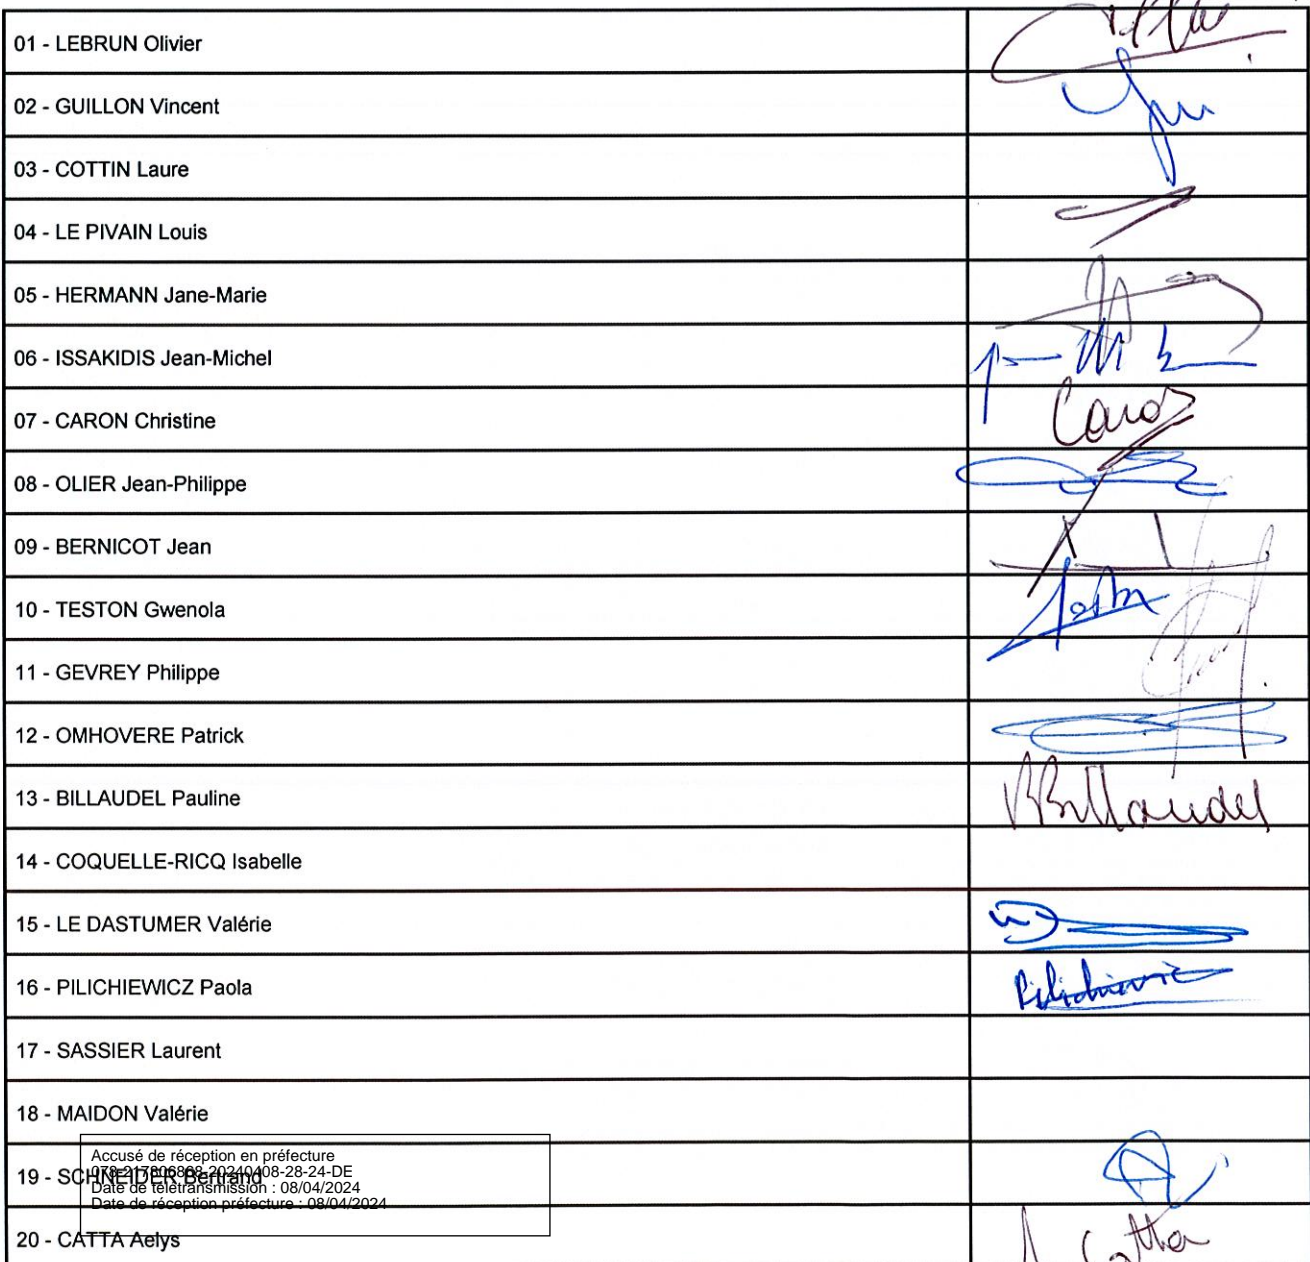 01 - LEBRUN Olivier
02 - GUILLON Vincent
03 - COTTIN Laure
04 - LE PIVAIN Louis
05 - HERMANN Jane-Marie
06 - ISSAKIDIS Jean-Michel
07 - CARON Christine
Caron
08 - OLIER Jean-Philippe
09 - BERNICOT Jean
10 - TESTON Gwenola
11 - GEVREY Philippe
12 - OMHOVERE Patrick
13 - BILLAUDEL Pauline
Billaudel
14 - COQUELLE-RICQ Isabelle
15 - LE DASTUMER Valérie
16 - PILICHIEWICZ Paola
17 - SASSIER Laurent
18 - MAIDON Valérie
Accusé de réception en préfecture
078-217806868-20240408-28-24-DE
19 - SCHNEIDER Bertrand
Date de télétransmission : 08/04/2024
Date de réception préfecture : 08/04/2024
20 - CATTA Aelys
Catta